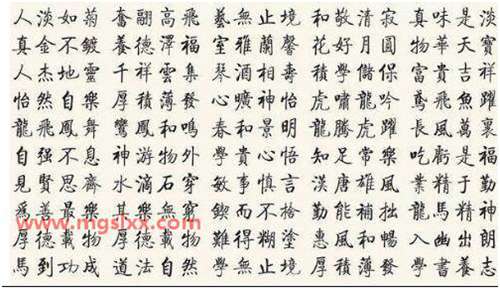 人淡如菊 奮翮高飛 藝無止境 和敬清寂 真味是淡
真金不鍍 養德澤福 室雅蘭馨 花好月圓 物華天寶
人杰地靈 千祥雲集 琴酒相壽 積學儲保 富貴吉祥
怡然自樂 厚積薄發 心曠神怡 虎嘯龍吟 鳶飛魚躍
龍飛鳳舞 鸞鳳和鳴 春和景明 龍騰虎躍 長風萬裏
自强不息 神游物外 學貴心悟 知足常樂 吃虧是福
見賢思齊 水滴石穿 敏事慎言 漢唐雄風 業精于勤
爲善最樂 無窮 鍥而不捨 勤能補拙 龍馬精神
www.mgslxx.com
厚德載物 厚德載物 難得糊塗 惠風和暢 入幽出朗
馬到功成 道法自然 學無止境 厚積薄發 學書養志